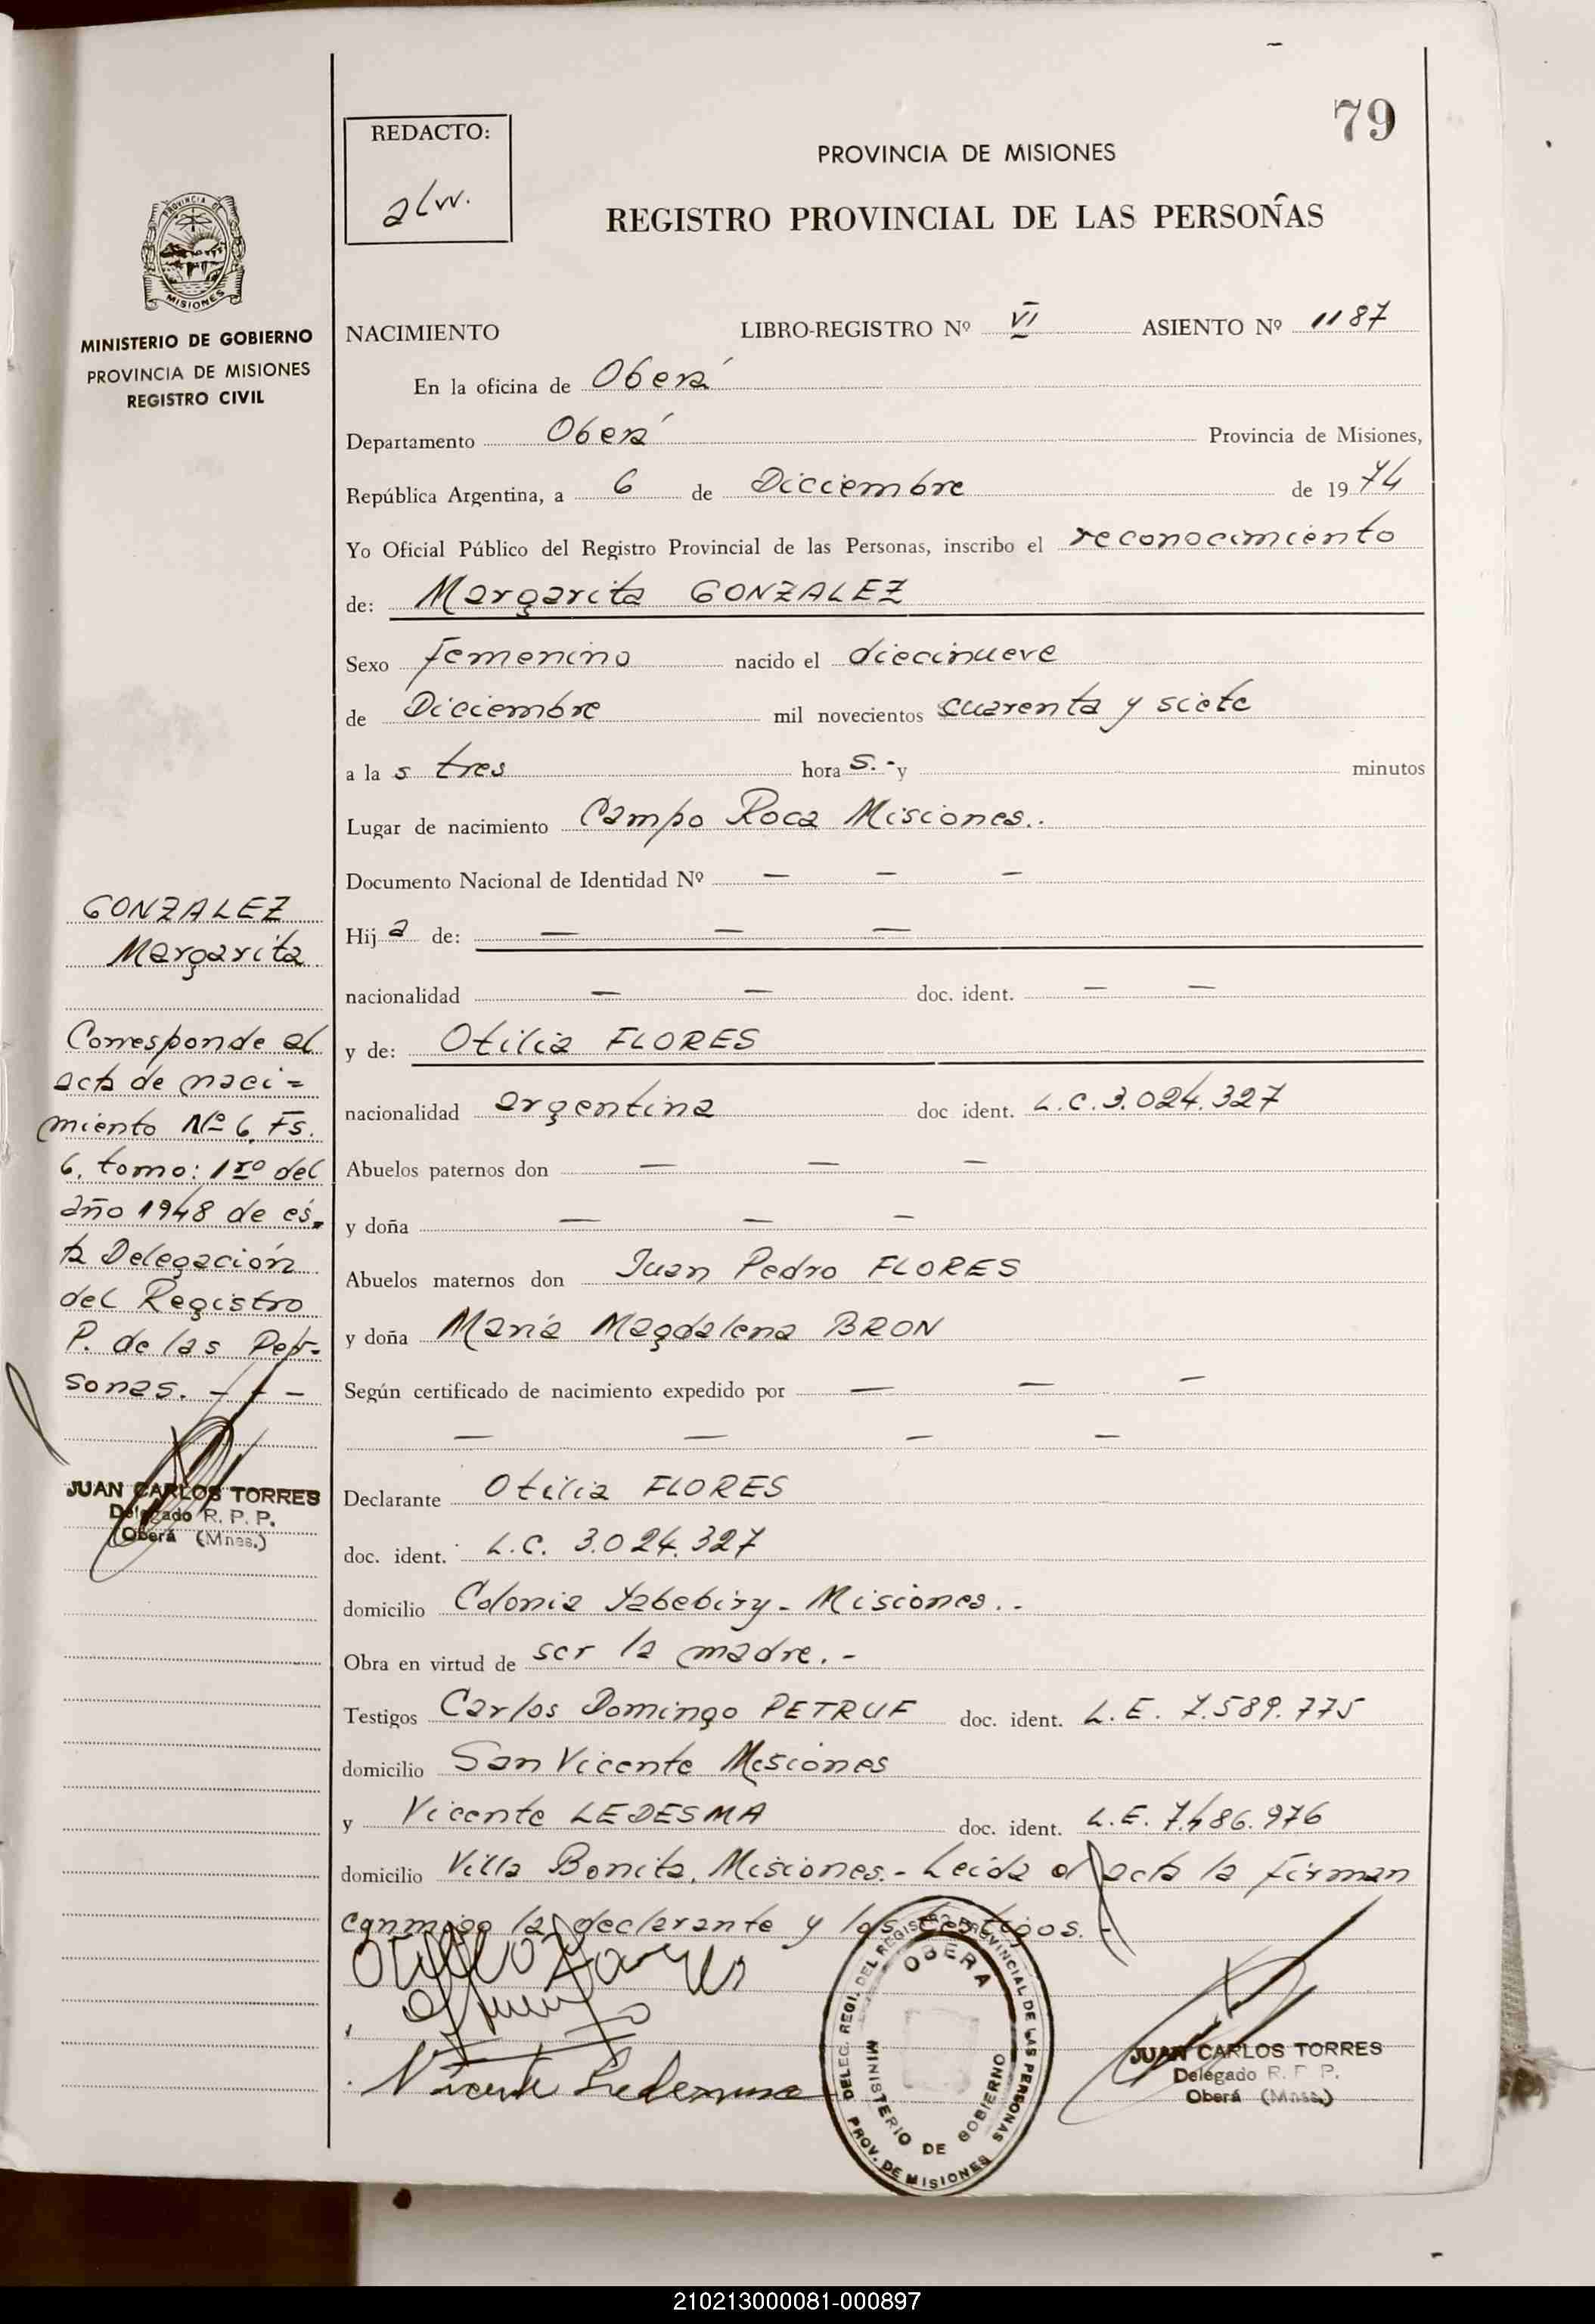 79
REDACTO:
alw.
PROVINCIA DE MISIONES
REGISTRO PROVINCIAL DE LAS PERSONAS
PROVINCIA DE
MISIONES
MINISTERIO DE GOBIERNO
PROVINCIA DE MISIONES
REGISTRO CIVIL
NACIMIENTO LIBRO-REGISTRO Nº VI ASIENTO Nº 1187
En la oficina de Oberá
Departamento Oberá Provincia de Misiones,
República Argentina, a 6 de Dicciembre de 1974
Yo Oficial Público del Registro Provincial de las Personas, inscribo el reconocimiento
de: Margarita GONZALEZ
Sexo femenino nacido el diecinueve
de Diciembre mil novecientos cuarenta y siete
a la s tres hora s.- y minutos
Lugar de nacimiento Campo Roca Misiones..
Documento Nacional de Identidad Nº — — —
Hija de: — — —
nacionalidad — — doc. ident. — —
y de: Otilia FLORES
nacionalidad argentina doc ident. L.C.3.024.327
Abuelos paternos don — — —
y doña — — —
Abuelos maternos don Juan Pedro FLORES
y doña María Magdalena BRON
Según certificado de nacimiento expedido por — — —
— — — —
Declarante Otilia FLORES
doc. ident. L.C. 3.024.327
domicilio Colonia Yabebiry - Misiones..-
Obra en virtud de ser la madre.-
Testigos Carlos Domingo PETRUF doc. ident. L.E. 7.589.775
domicilio San Vicente Misiones
y Vicente LEDESMA doc. ident. L.E. 7.486.976
domicilio Villa Bonita, Misiones.- Leida el acta la firman
conmigo la declarante y los testigos.-
GONZALEZ
Margarita
Corresponde al
acta de naci=
miento Nº 6, Fs.
6, tomo: 1ro del
año 1948 de és=
ta Delegación
del Registro
P. de las Per-
sonas. - - -
JUAN CARLOS TORRES
Delegado R. P. P.
Oberá (Mnes.)
Vicente Ledesma
DELEG. REGI. DEL REGISTRO PROVINCIAL DE LAS PERSONAS
OBERA
MINISTERIO DE GOBIERNO
PROV. DE MISIONES
JUAN CARLOS TORRES
Delegado R. P. P.
Oberá (Mnes.)
210213000081-000897